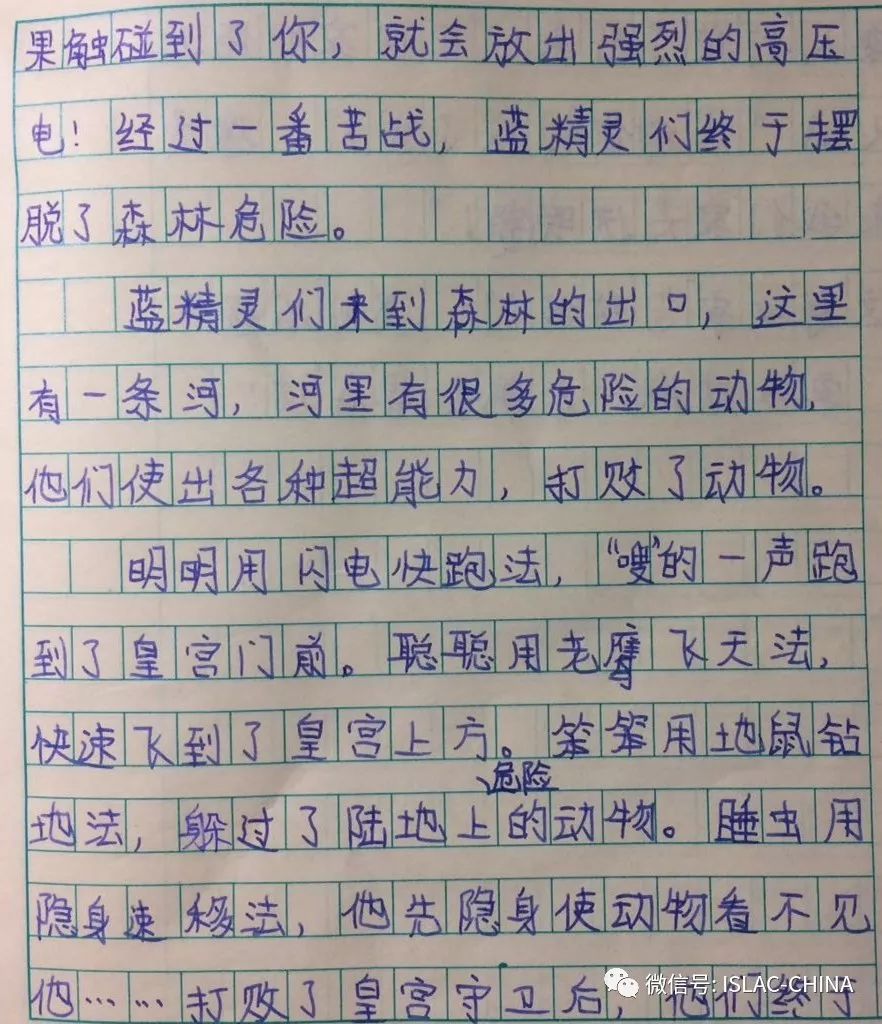 果触碰到了你，就会放出强烈的高压
电！经过一番苦战，蓝精灵们终于摆
脱了森林危险。
蓝精灵们来到森林的出口，这里
有一条河，河里有很多危险的动物，
他们使出各种超能力，打败了动物。
明明用闪电快跑法，“嗖”的一声跑
到了皇宫门前。聪聪用老鹰飞天法，
快速飞到了皇宫上方。笨笨用地鼠钻
危险
地法，躲过了陆地上的动物。睡虫用
隐身速移法，他先隐身使动物看不见
他……打败了皇宫守卫后，他们终于
微信号: ISLAC-CHINA